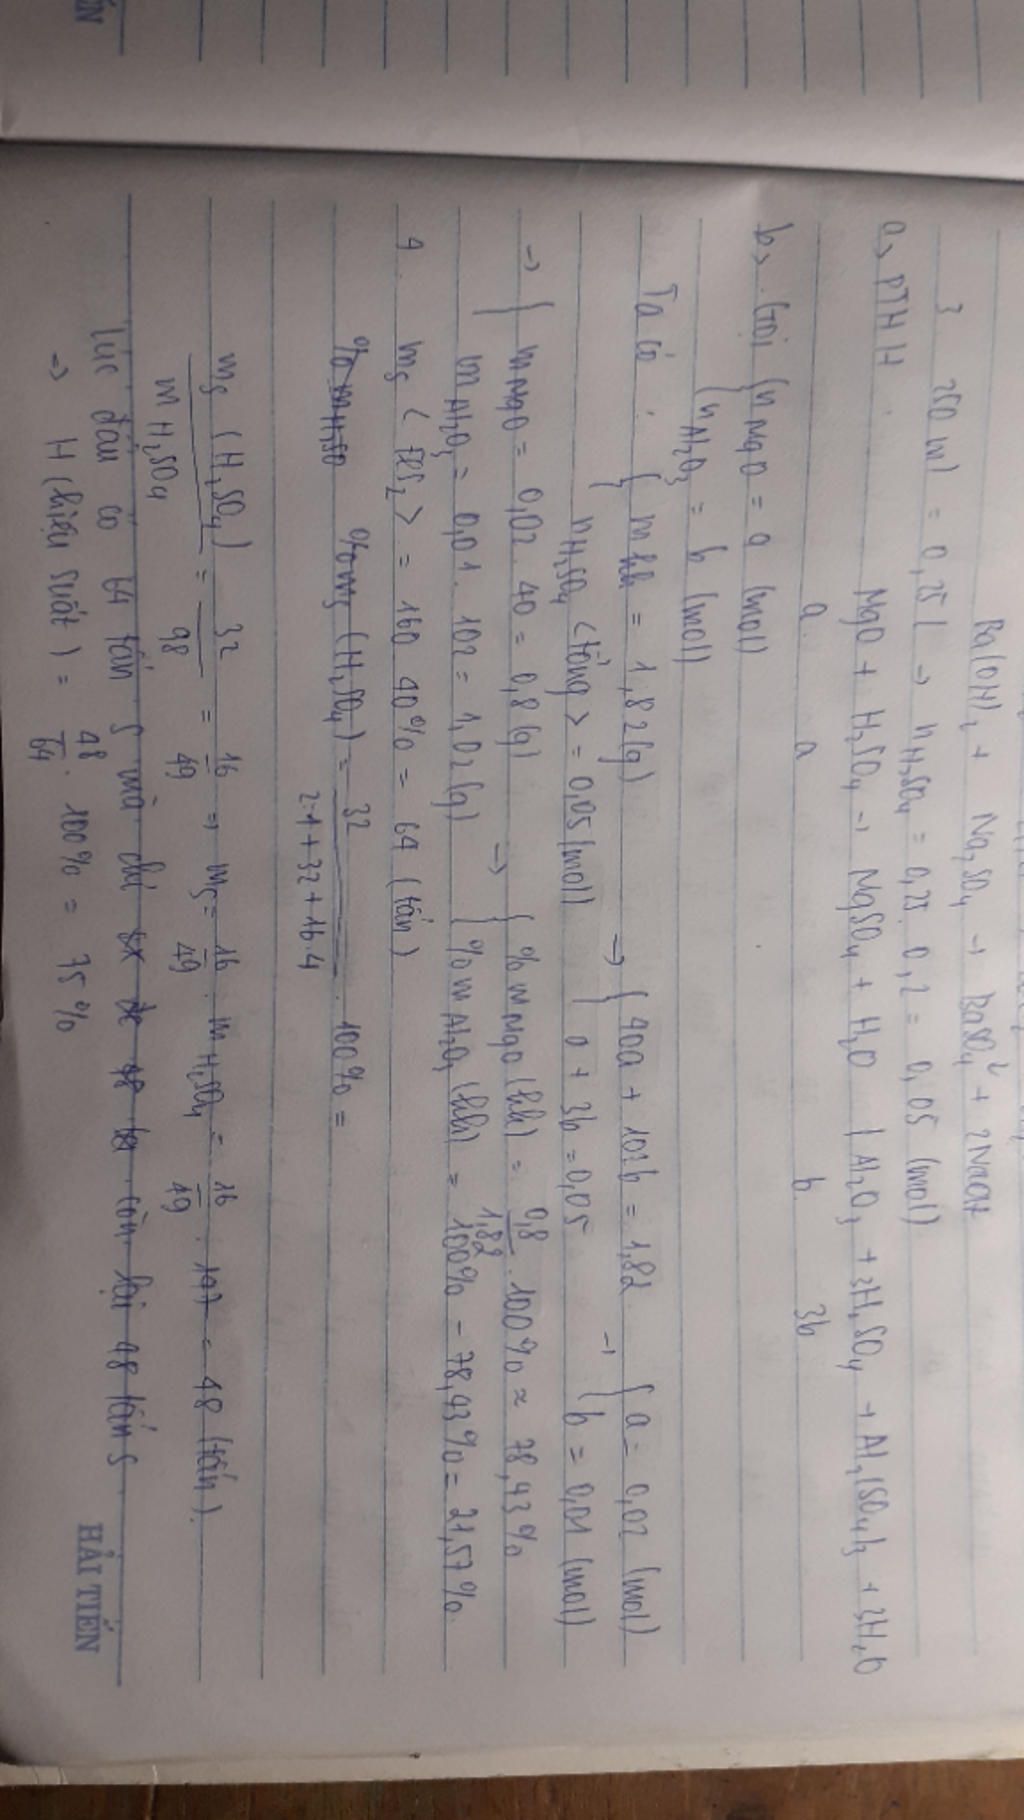 Ba(OH)₂ + Na₂SO₄ → BaSO₄ + 2NaOH
3 250 ml = 0,25 l → nH₂SO₄ = 0,25. 0,2 = 0,05 (mol)
a, PTHH : MgO + H₂SO₄ → MgSO₄ + H₂O | Al₂O₃ + 3H₂SO₄ → Al₂(SO₄)₃ + 3H₂O
a a b 3b
b, Gọi { nMgO = a (mol)
nAl₂O₃ = b (mol)
Ta có : { mhh = 1,82(g) → { 40a + 102b = 1,82 { a = 0,02 (mol)
nH₂SO₄ <tổng> = 0,05 (mol) a + 3b = 0,05 → b = 0,01 (mol)
→ { mMgO = 0,02. 40 = 0,8 (g) → { %mMgO (hh) = 0,8/1,82 . 100% ≈ 78,43%
mAl₂O₃ = 0,01. 102 = 1,02 (g) %mAl₂O₃ (hh) = 100% - 78,43% = 21,57%
4. mS < FeS₂ > = 160 40% = 64 (tấn)
%mH₂SO %mS (H₂SO₄) = 32/2.1+32+16.4 . 100% =
mS (H₂SO₄)/mH₂SO₄ = 32/98 = 16/49 → mS = 16/49 . mH₂SO₄ = 16/49 . 147 = 48 (tấn)
lúc đầu có 64 tấn S mà còn lại 48 tấn S
→ H (hiệu suất) = 48/64 . 100% = 75%
HẢI TIẾN